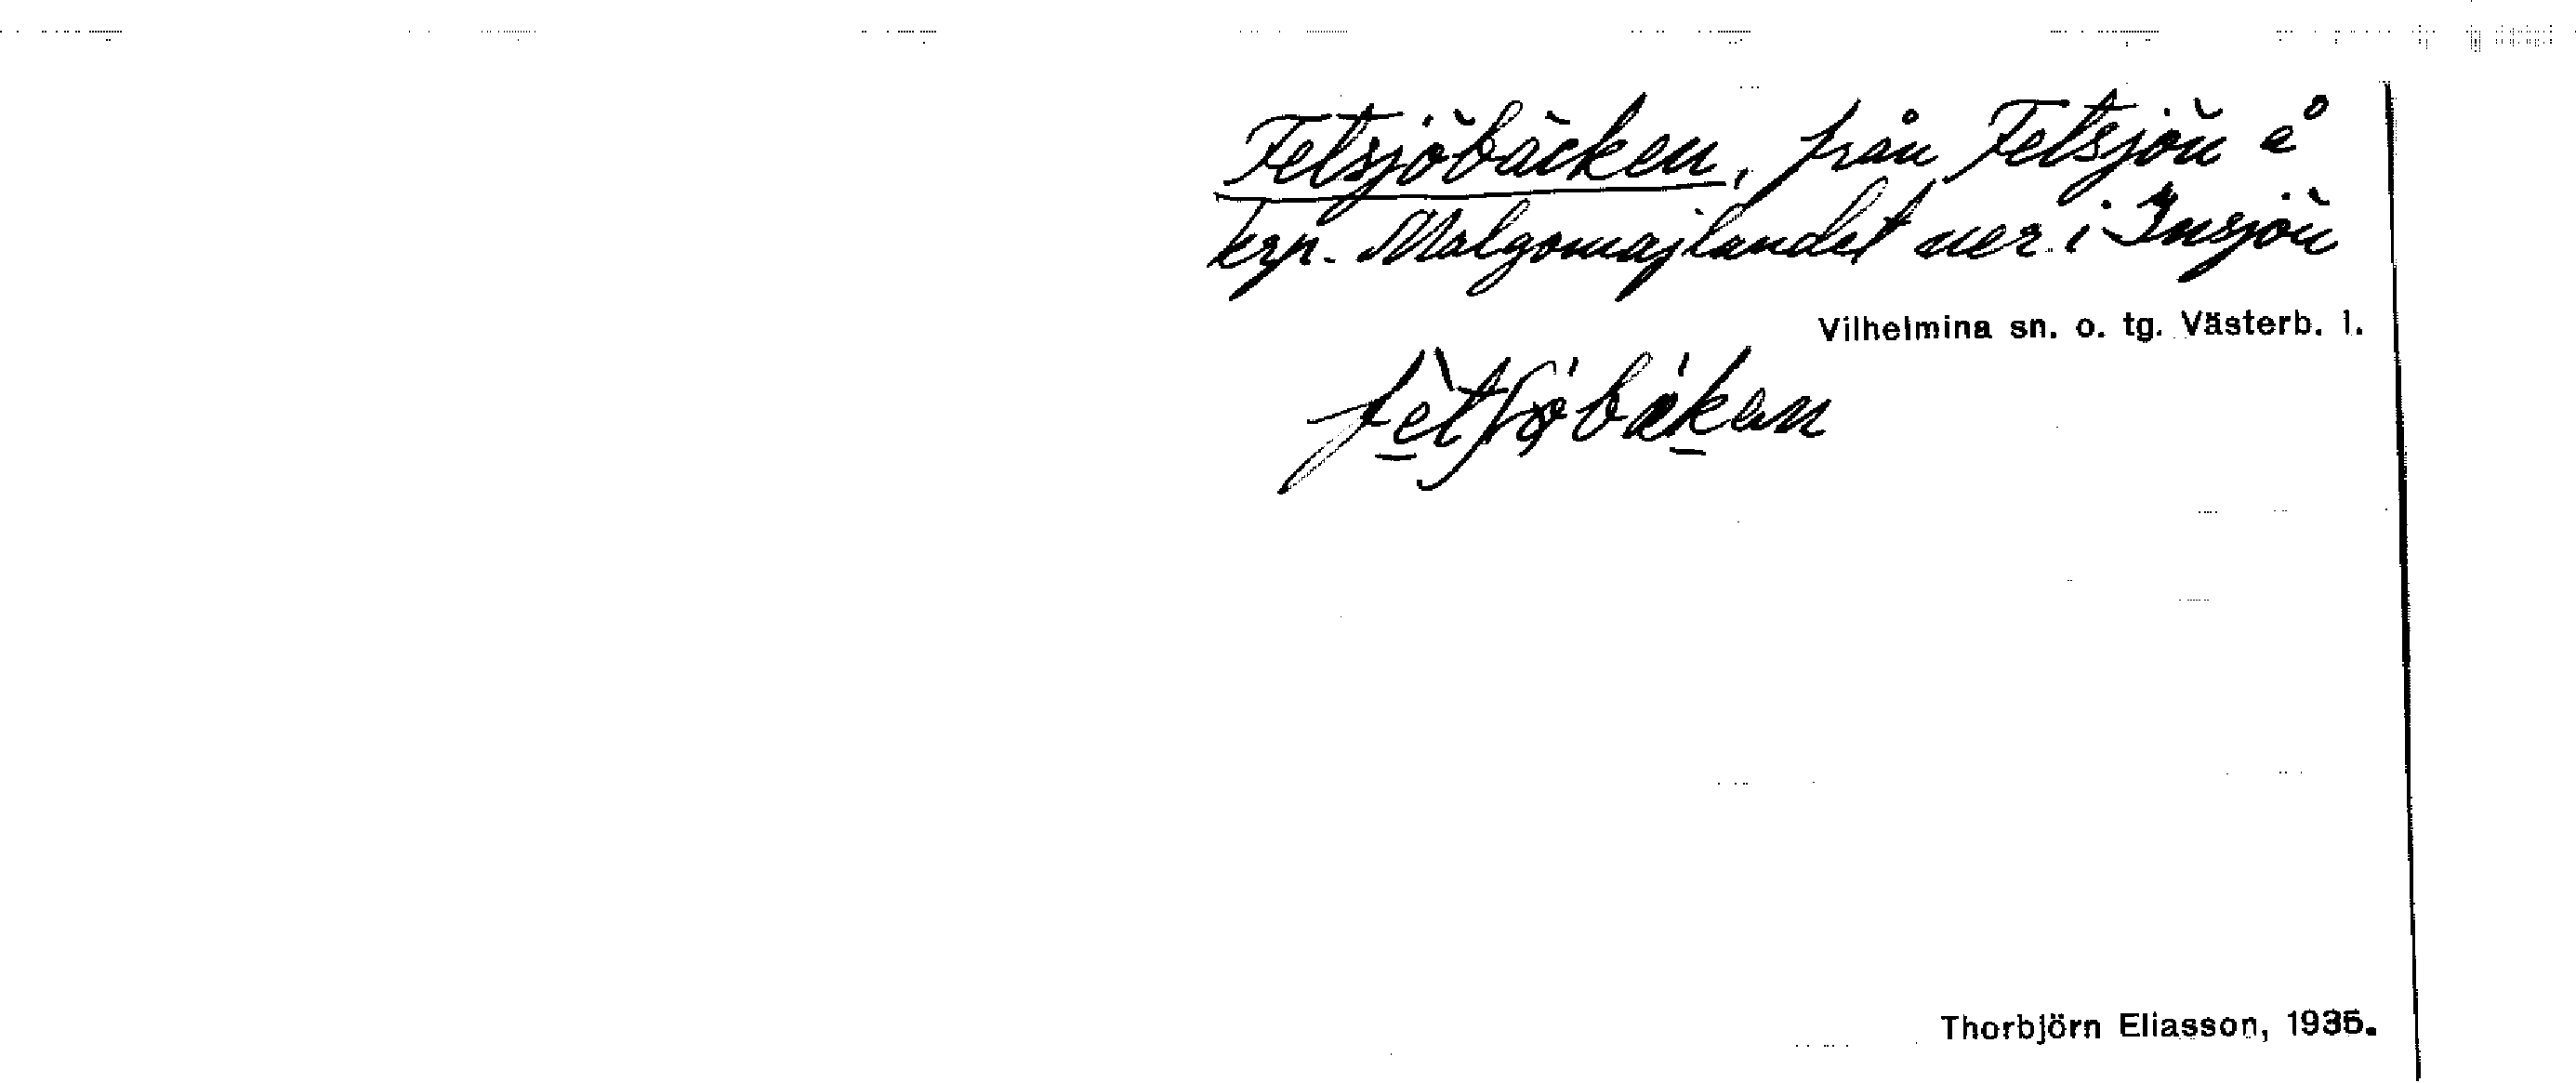 Fetsjöbäcken, från Fetsjön å
krp. Malgomajlandet ner i Insjön
Vilhelmina sn. o. tg. Västerb. l.
Thorbjörn Eliasson, 1935.